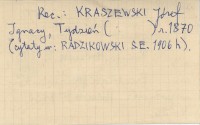 Rec.: KRASZEWSKI Józef
Ignacy, Tydzień ( ) r. 1870
(cytaty w: RADZIKOWSKI S.E. 1906 h).